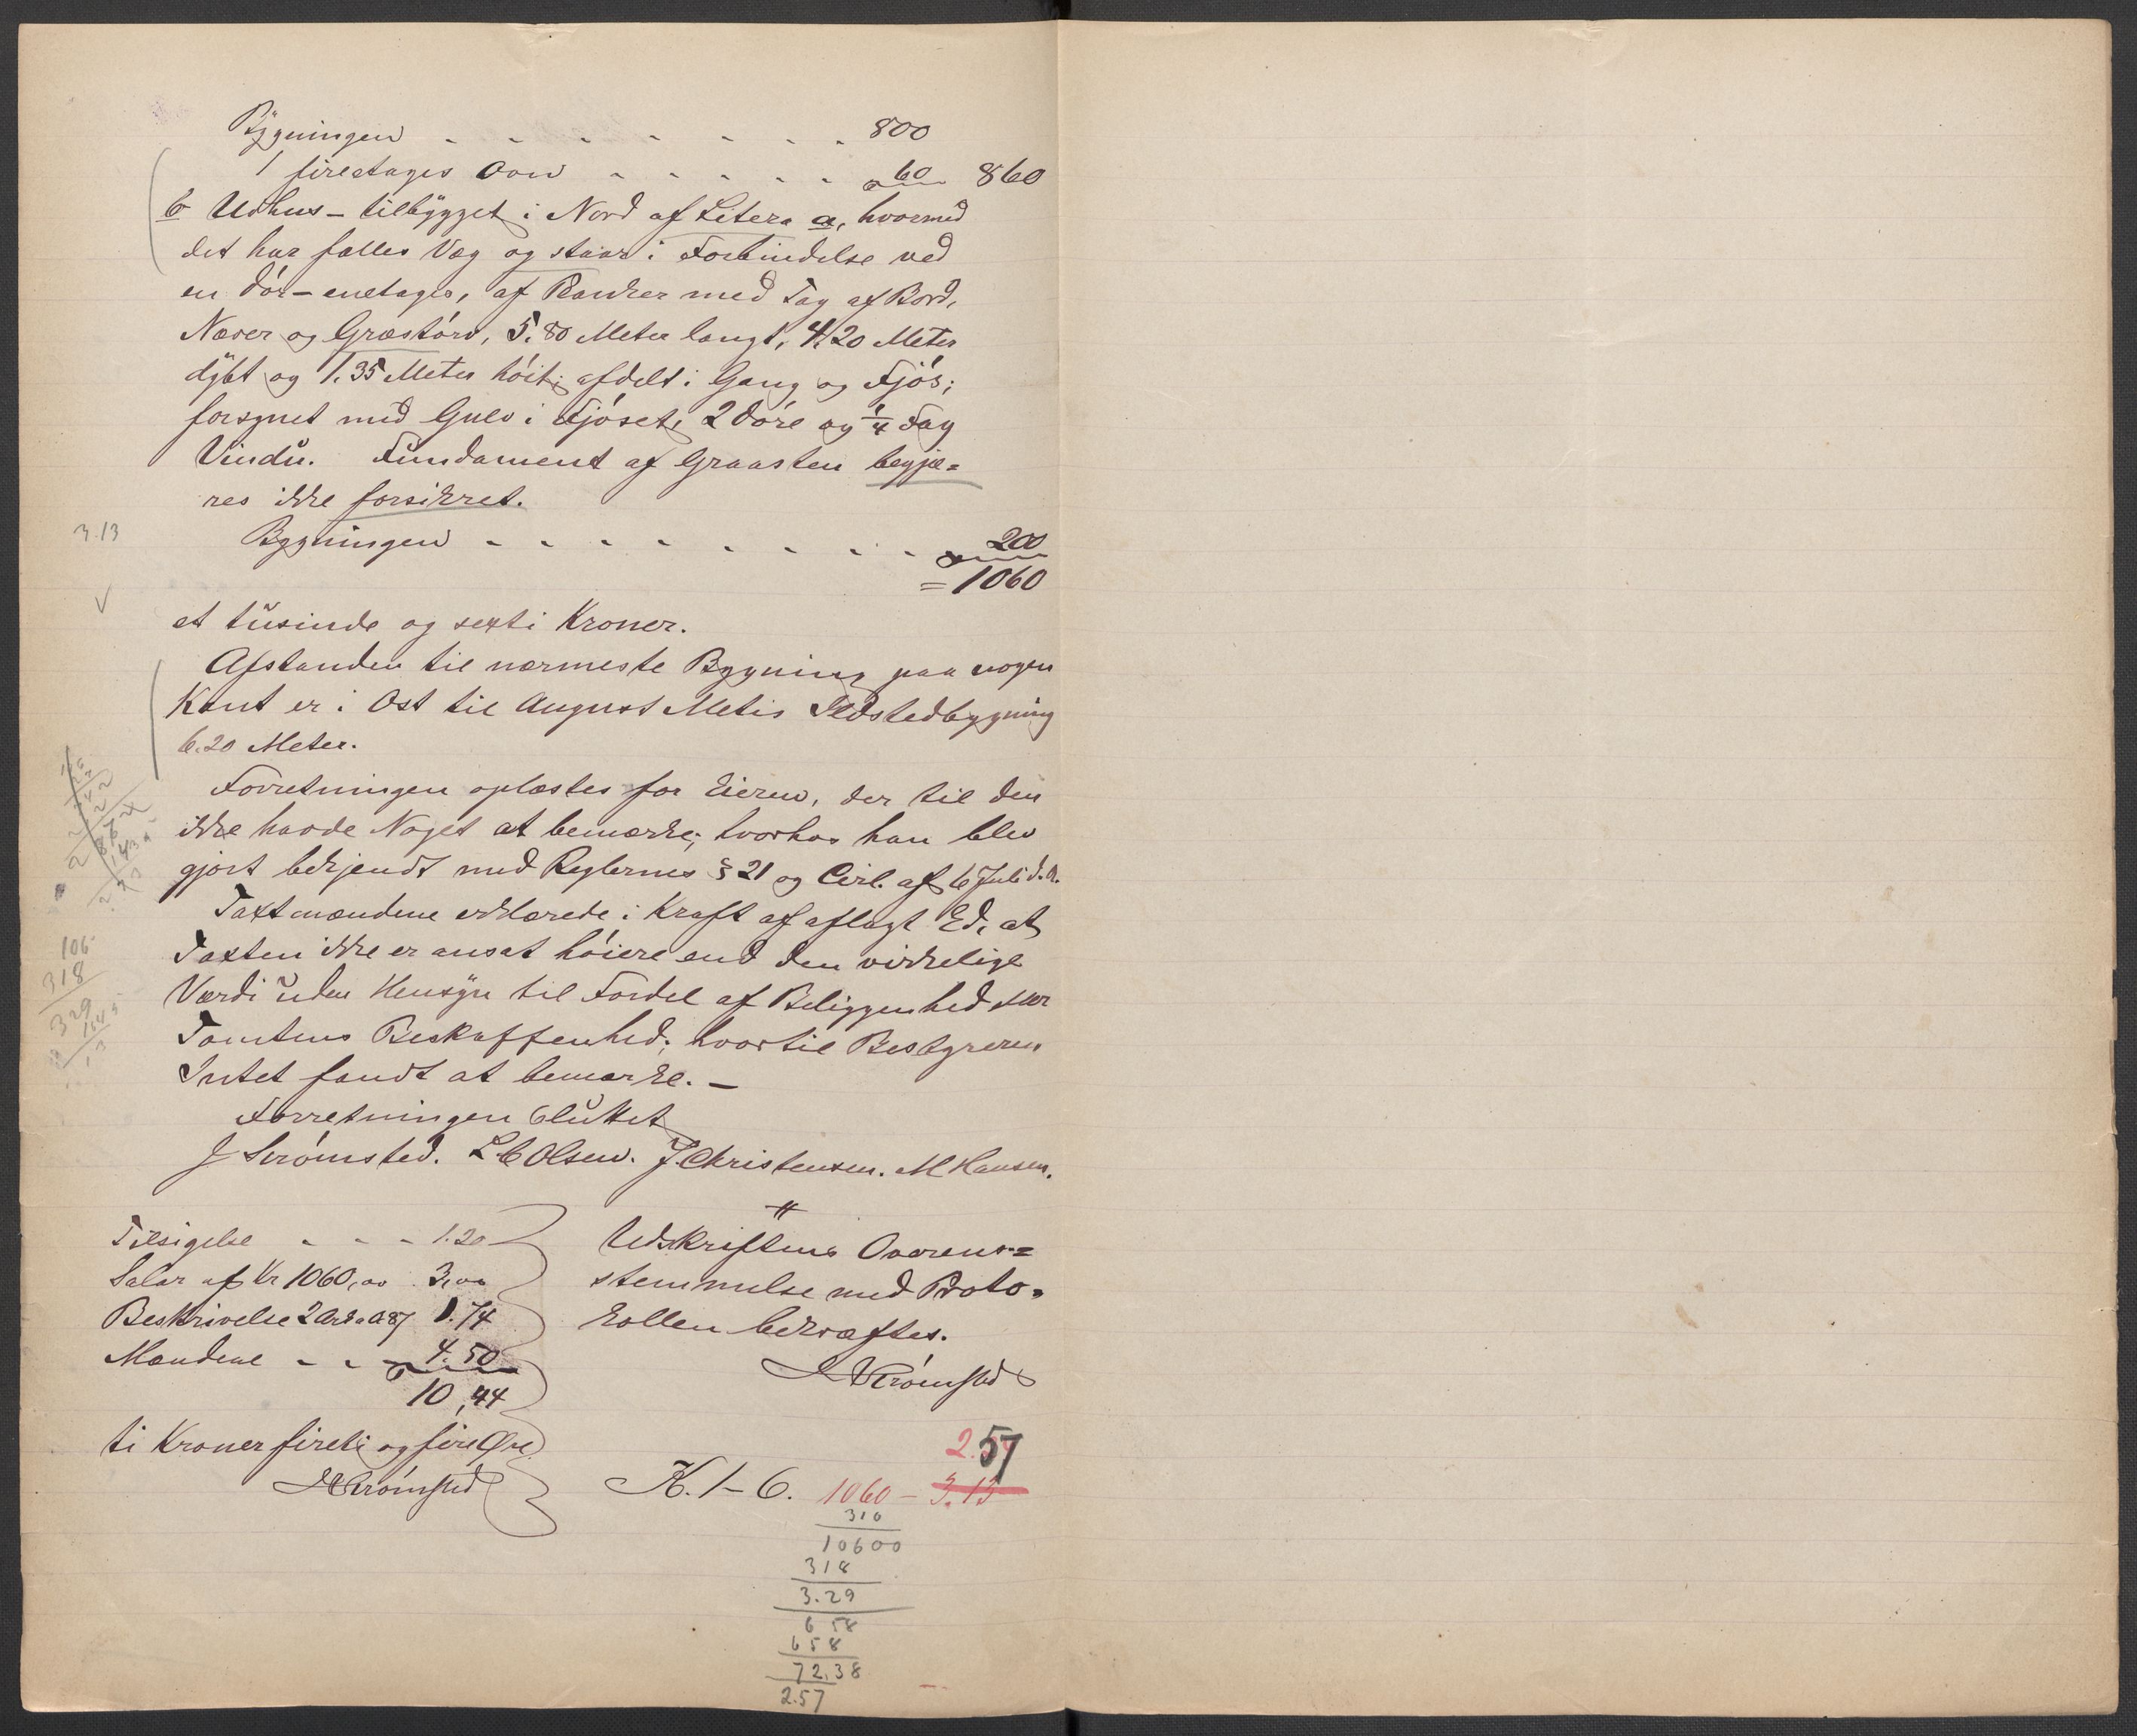 Bygningen - - - - - - - 800
1 fireetages Ovn - - - - - 60 860
b Udhus - tilbygget i Nord af Litera a, hvormed
det har fælles Væg og staar i Forbindelse ved
en Dør - enetages, af Planker med Tag af Bord,
Næver og Græstørv, 5.80 Meter langt, 4.20 Meter
dybt og 1.35 Meter høit; afdelt i Gang og Fjøs;
forsynet med Gulv i Fjøset, 2 Døre og 1/4 Fag
Vindu. Fundament af Graasten begjæ=
res ikke forsikret.
3.13
Bygningen - - - - - - - - 200
= 1060
et tusinde og sexti Kroner.
Afstanden til nærmeste Bygning paa nogen
Kant er i Øst til August Metis Ildstedbygning
6.20 Meter.
Forretningen oplæstes for Eieren, der til den
ikke havde Noget at bemærke; hvorhos han blev
gjort bekjendt med Reglernes § 21 og Cirk. af 6 Juli d. A.
Taxtmændene erklærede i Kraft af aflagt Ed, at
Taxten ikke er ansat høiere end den virkelige
Værdi uden Hensyn til Fordel af Beliggenhed eller
Tomtens Beskaffenhed; hvortil Bestyreren
Intet fandt at bemærke. -
106
318
329
Forretningen sluttet
J Strømsted. L. C Olsen. J. Christensen. M Hansen.
Tilsigelse - - - 1.20
Salær af Kr 1060,00 3,00
Beskrivelse 2 Ark a 87 1.74
Mændene - - - 4.50
10,44
ti Kroner firti og fire Øre
JStrømsted
Udskriftens Overens=
stemmelse med Proto=
kollen bekræftes.
JStrømsted
2.57
K. 1-6. 1060 - 3.13
310
10600
318
3.29
658
658
72.38
2.57